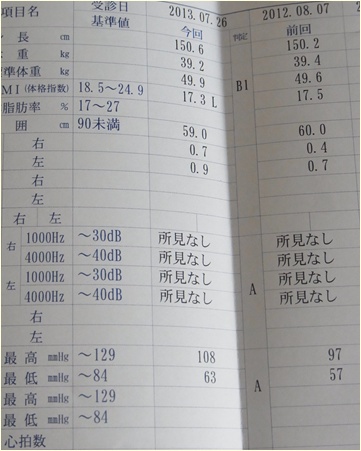 項目名 受診日 2013.07.26 2012.08.07
基準値 今回 判定 前回
長 cm 150.6 150.2
重 kg 39.2 39.4
準体重 kg 49.9 B1 49.6
MI(体格指数) 18.5～24.9 17.3 L 17.5
脂肪率 % 17～27
囲 cm 90未満 59.0 60.0
右 0.7 0.4
左 0.9 0.7
右
左
右 左
右 1000Hz ～30dB 所見なし 所見なし
4000Hz ～40dB 所見なし 所見なし
左 1000Hz ～30dB 所見なし A 所見なし
4000Hz ～40dB 所見なし 所見なし
右
左
最高 mmHg ～129 108 97
最低 mmHg ～84 63 A 57
最高 mmHg ～129
最低 mmHg ～84
心拍数